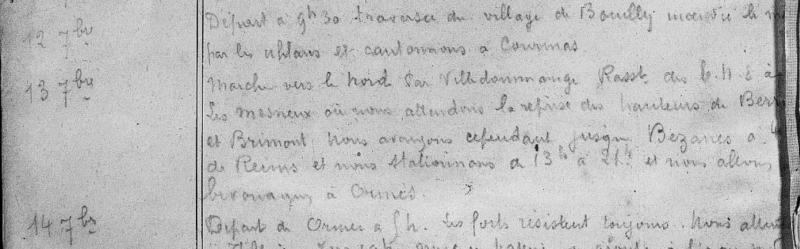 12 7bre Départ à 9h30 traversée du village de Bouilly incendié le
par les uhlans et cantonnons à Courmas
13 7bre Marche vers le Nord par Villedommange Rasst. des
Les Mesneux où nous attendons la reprise des hauteurs de
et Brimont, Nous avançons cependant jusqu Bezanes a
de Reims et nous stationnons de 13h à 21h et nous allons
bivouaquer à Ormes.
14 7bre Départ de Ormes à 5h. Les forts résistent toujours. Nous